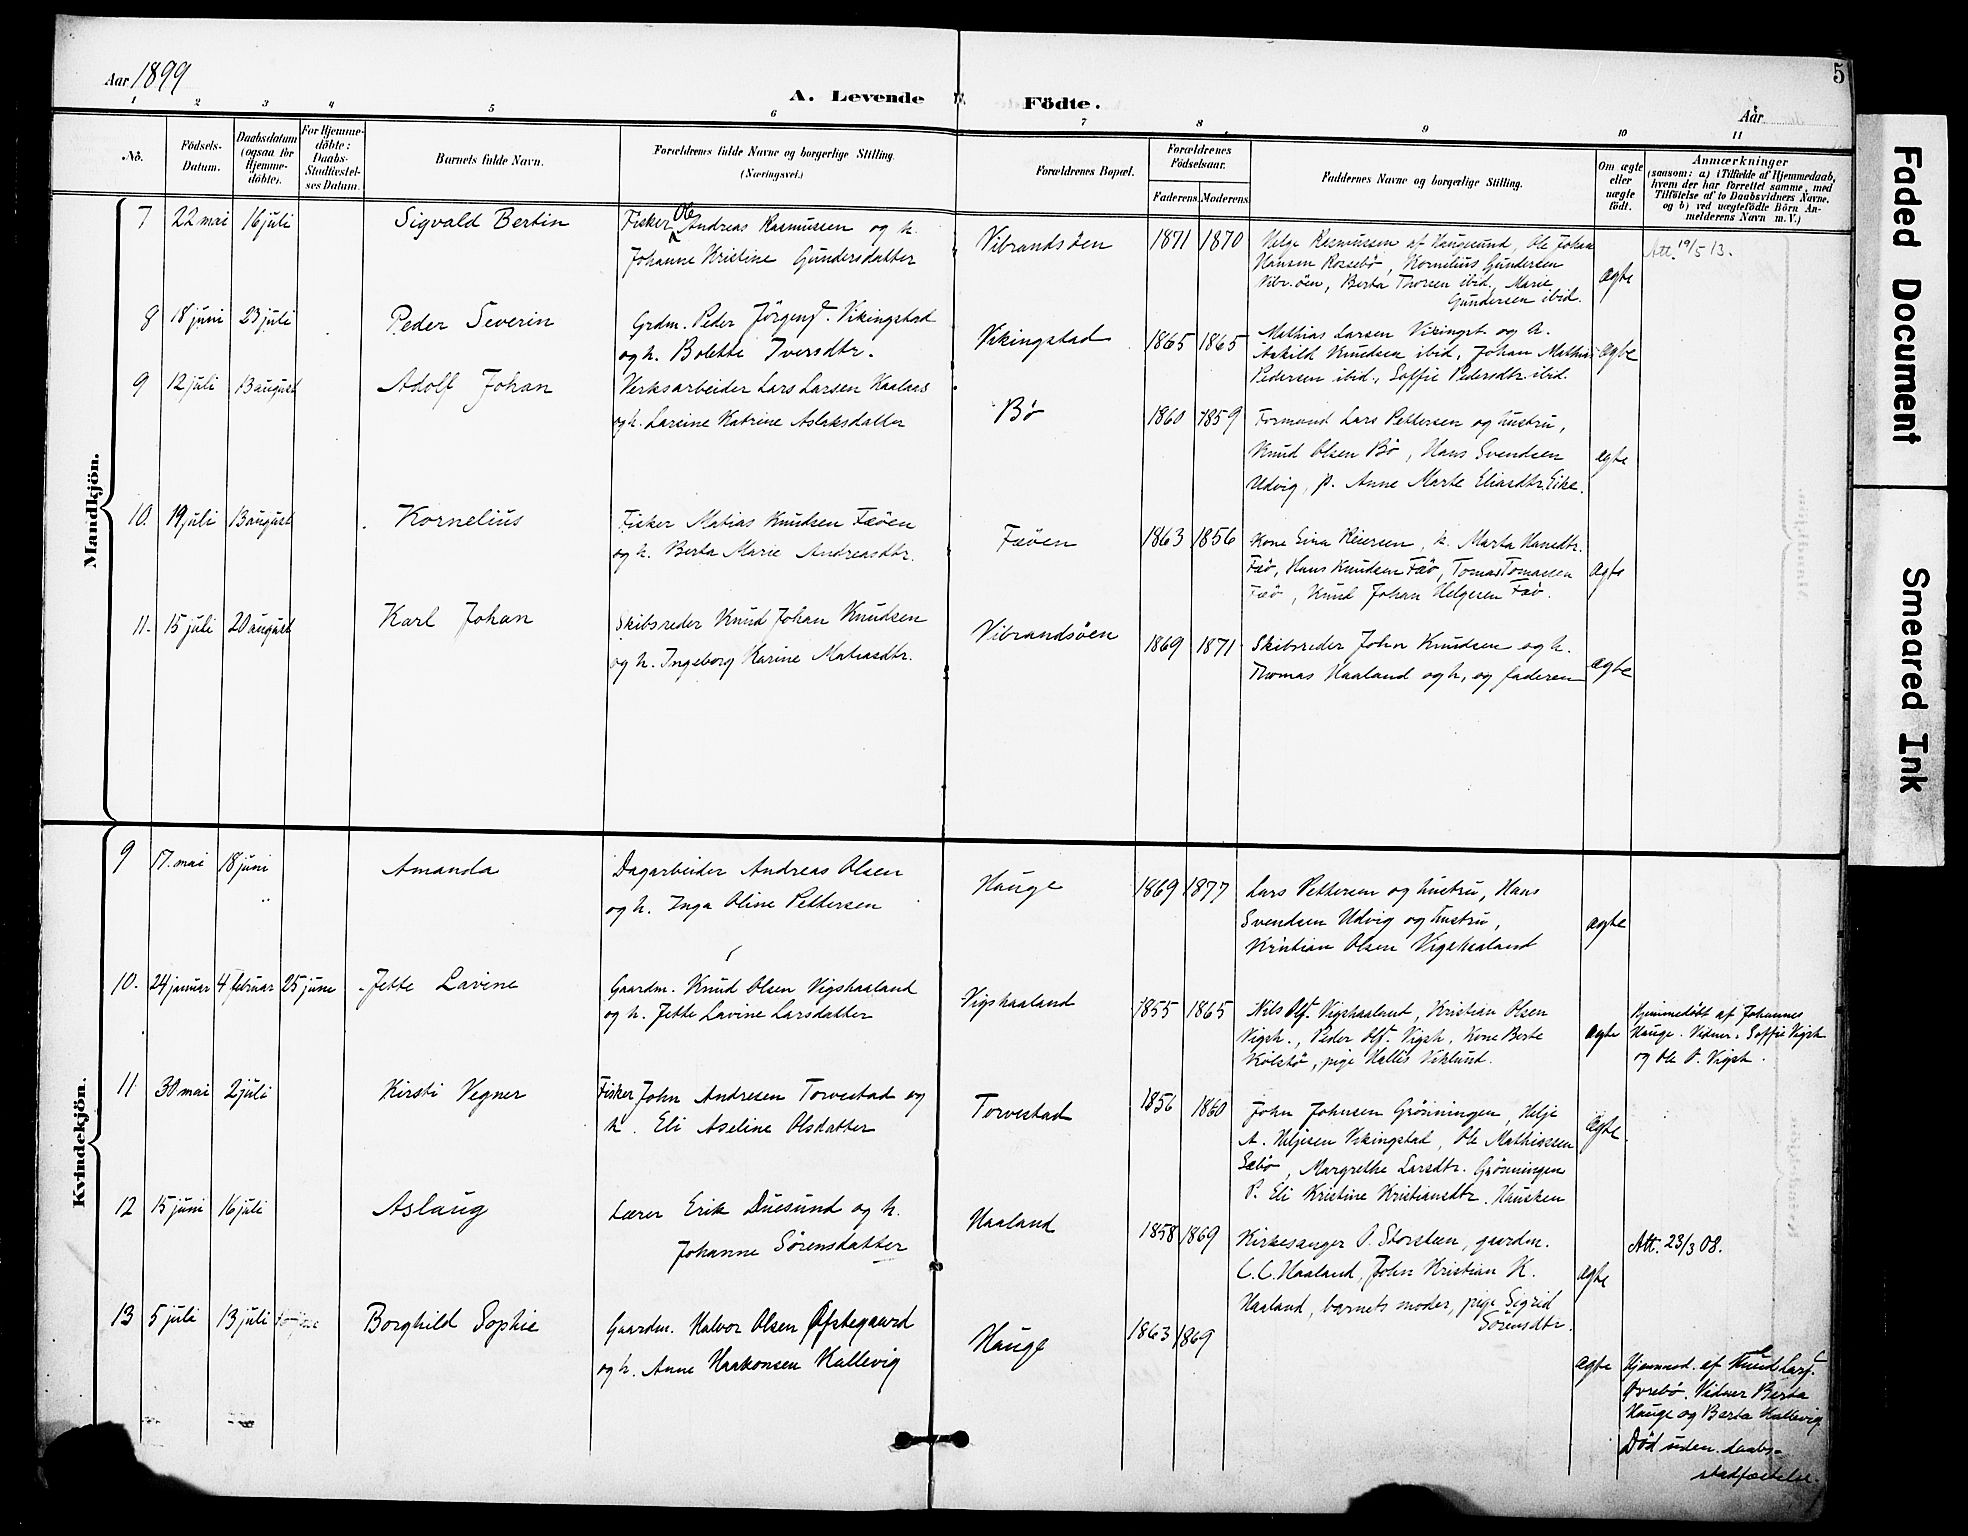 5
Aar 1899
A. Levende Födte.
Aar
1 2 3 4 5 6 7 8 9 10 11
No.
Födsels-
Datum.
Daabsdatum
(ogsaa for
Hjemme-
döbte).
For Hjemme-
döbte:
Daabs-
Stadfæstel-
ses Datum.
Barnets fulde Navn.
Forældrenes fulde Navne og borgerlige Stilling.
(Næringsvei.)
Forældrenes Bopæl.
Forældrenes
Födselsaar.
Faderens Moderens
Faddernes Navne og borgerlige Stilling.
Om ægte
eller
uægte
födt.
Anmærkninger
(saasom: a) i Tilfælde af Hjemmedaab,
hvem der har forrettet samme, med
Tilföielse af to Daabsvidners Navne.
og b) ved uægtefödte Börn An-
melderens Navn m. V.)
Mandkjön.
7 22 mai 16 juli Sigvald Bertin
Fisker Ole Andreas Rasmussen og h.
Johanne Kristine Gundersdatter
Vibrandsöen 1871 1870
Helge Rasmussen af Haugesund, Ole Johan
Hansen Rossebö, Kornelius Gundersen
Vibr.öen, Berta Thorsen ibid. Marie
Gundersen ibid.
ægte
Att. 19/5 13.
8 18 juni 23 juli Peder Severin
Grdm. Peder Jörgens. Vikingstad
og h. Bolette Iversdtr.
Vikingstad 1865 1865
Mathias Larsen Vikingst og h.
Askild Knudsen ibid, Johan Mathias
Pedersen ibid., Soffie Pedersdtr. ibid.
ægte
9 12 juli 13 august Adolf Johan
Verksarbeider Lars Larsen Kaalaas
og h. Larine Katrine Aslaksdatter
Bö 1860 1859
Formand Lars Pettersen og hustru,
Knud Olsen Bö, Hans Svendsen
Udvig, p. Anne Marte Eliasdtr. Eike.
ægte
10. 19 juli 13 august Kornelius
Fisker Matias Knudsen Fæöen
og h. Berta Marie Andreasdtr.
Fæöen 1863 1856
Kone Eina Reiersen, k. Marta Hansdtr.
Fæö, Hans Knudsen Fæö, Tomas Tomassen
Fæö, Knud Johan Helgesen Fæö.
ægte
11. 15 juli 20 august Karl Johan
Skibsreder Knud Johan Knudsen
og h. Ingeborg Karine Matiasdtr.
Vibrandsöen 1869 1871
Skibsreder John Knudsen og h.
Thomas Haaland og h, og faderen
ægte
Kvindekjön.
9 17. mai 18 juni Amanda
Dagarbeider Andreas Olsen
og h. Inga Oline Pettersen
Hauge 1869 1877
Lars Pettersen og hustru, Hans
Svendsen Udvig og hustru,
Kristian Olsen Vigshaaland
ægte
10. 24 januar 4 februar 25 june Jette Lavine
Gaardm. Knud Olsen Vigshaaland
og h. Jette Lavine Larsdatter
Vigshaaland 1855 1865
Nils Ols. Vigshaaland, Kristian Olsen
Vigsh., Peder Ols. Vigsh. Kone Berte
Kolstö, pige Hallis Viklund.
ægte
Hjemmedöbt af Johannes
Hauge. Vidner: Soffie Vigsh
og Ole P. Vigsh.
11 30 mai 2 juli Kirsti Vegner
Fisker John Andresen Torvestad og
h. Eli Aseline Olsdatter
Torvestad 1856 1860
John Johnsen Grönningen, Helje
A. Heljesen Vikingstad, Ole Mathiassen
Sæbö, Margrethe Larsdtr. Grönningen
P. Eli Kristine Kristiansdtr. Hausken
ægte.
12 15 juni 16 juli Aslaug
Lærer Erik Duesund og h.
Johanne Sörensdatter
Haaland 1858 1869
Kirkesanger P. Storsteen, gaardm.
C. C. Haaland, John Kristian K.
Haaland, barnets moder, pige Sigrid
Sörensdtr.
ægte
Att. 23/3 08.
13 5 juli 13 juli Borghild Sophie
Gaardm. Halvor Olsen Öfstegaard
og h. Anne Haakonsen Hallevig
Hauge 1863 1869
ægte
Hjemmed. af Knud Lars.
Övrebö. Vidner Berta
Hauge og Berta Hallevig
Död uden daabs-
stadfæstelse.
Faded Document
Smeared Ink